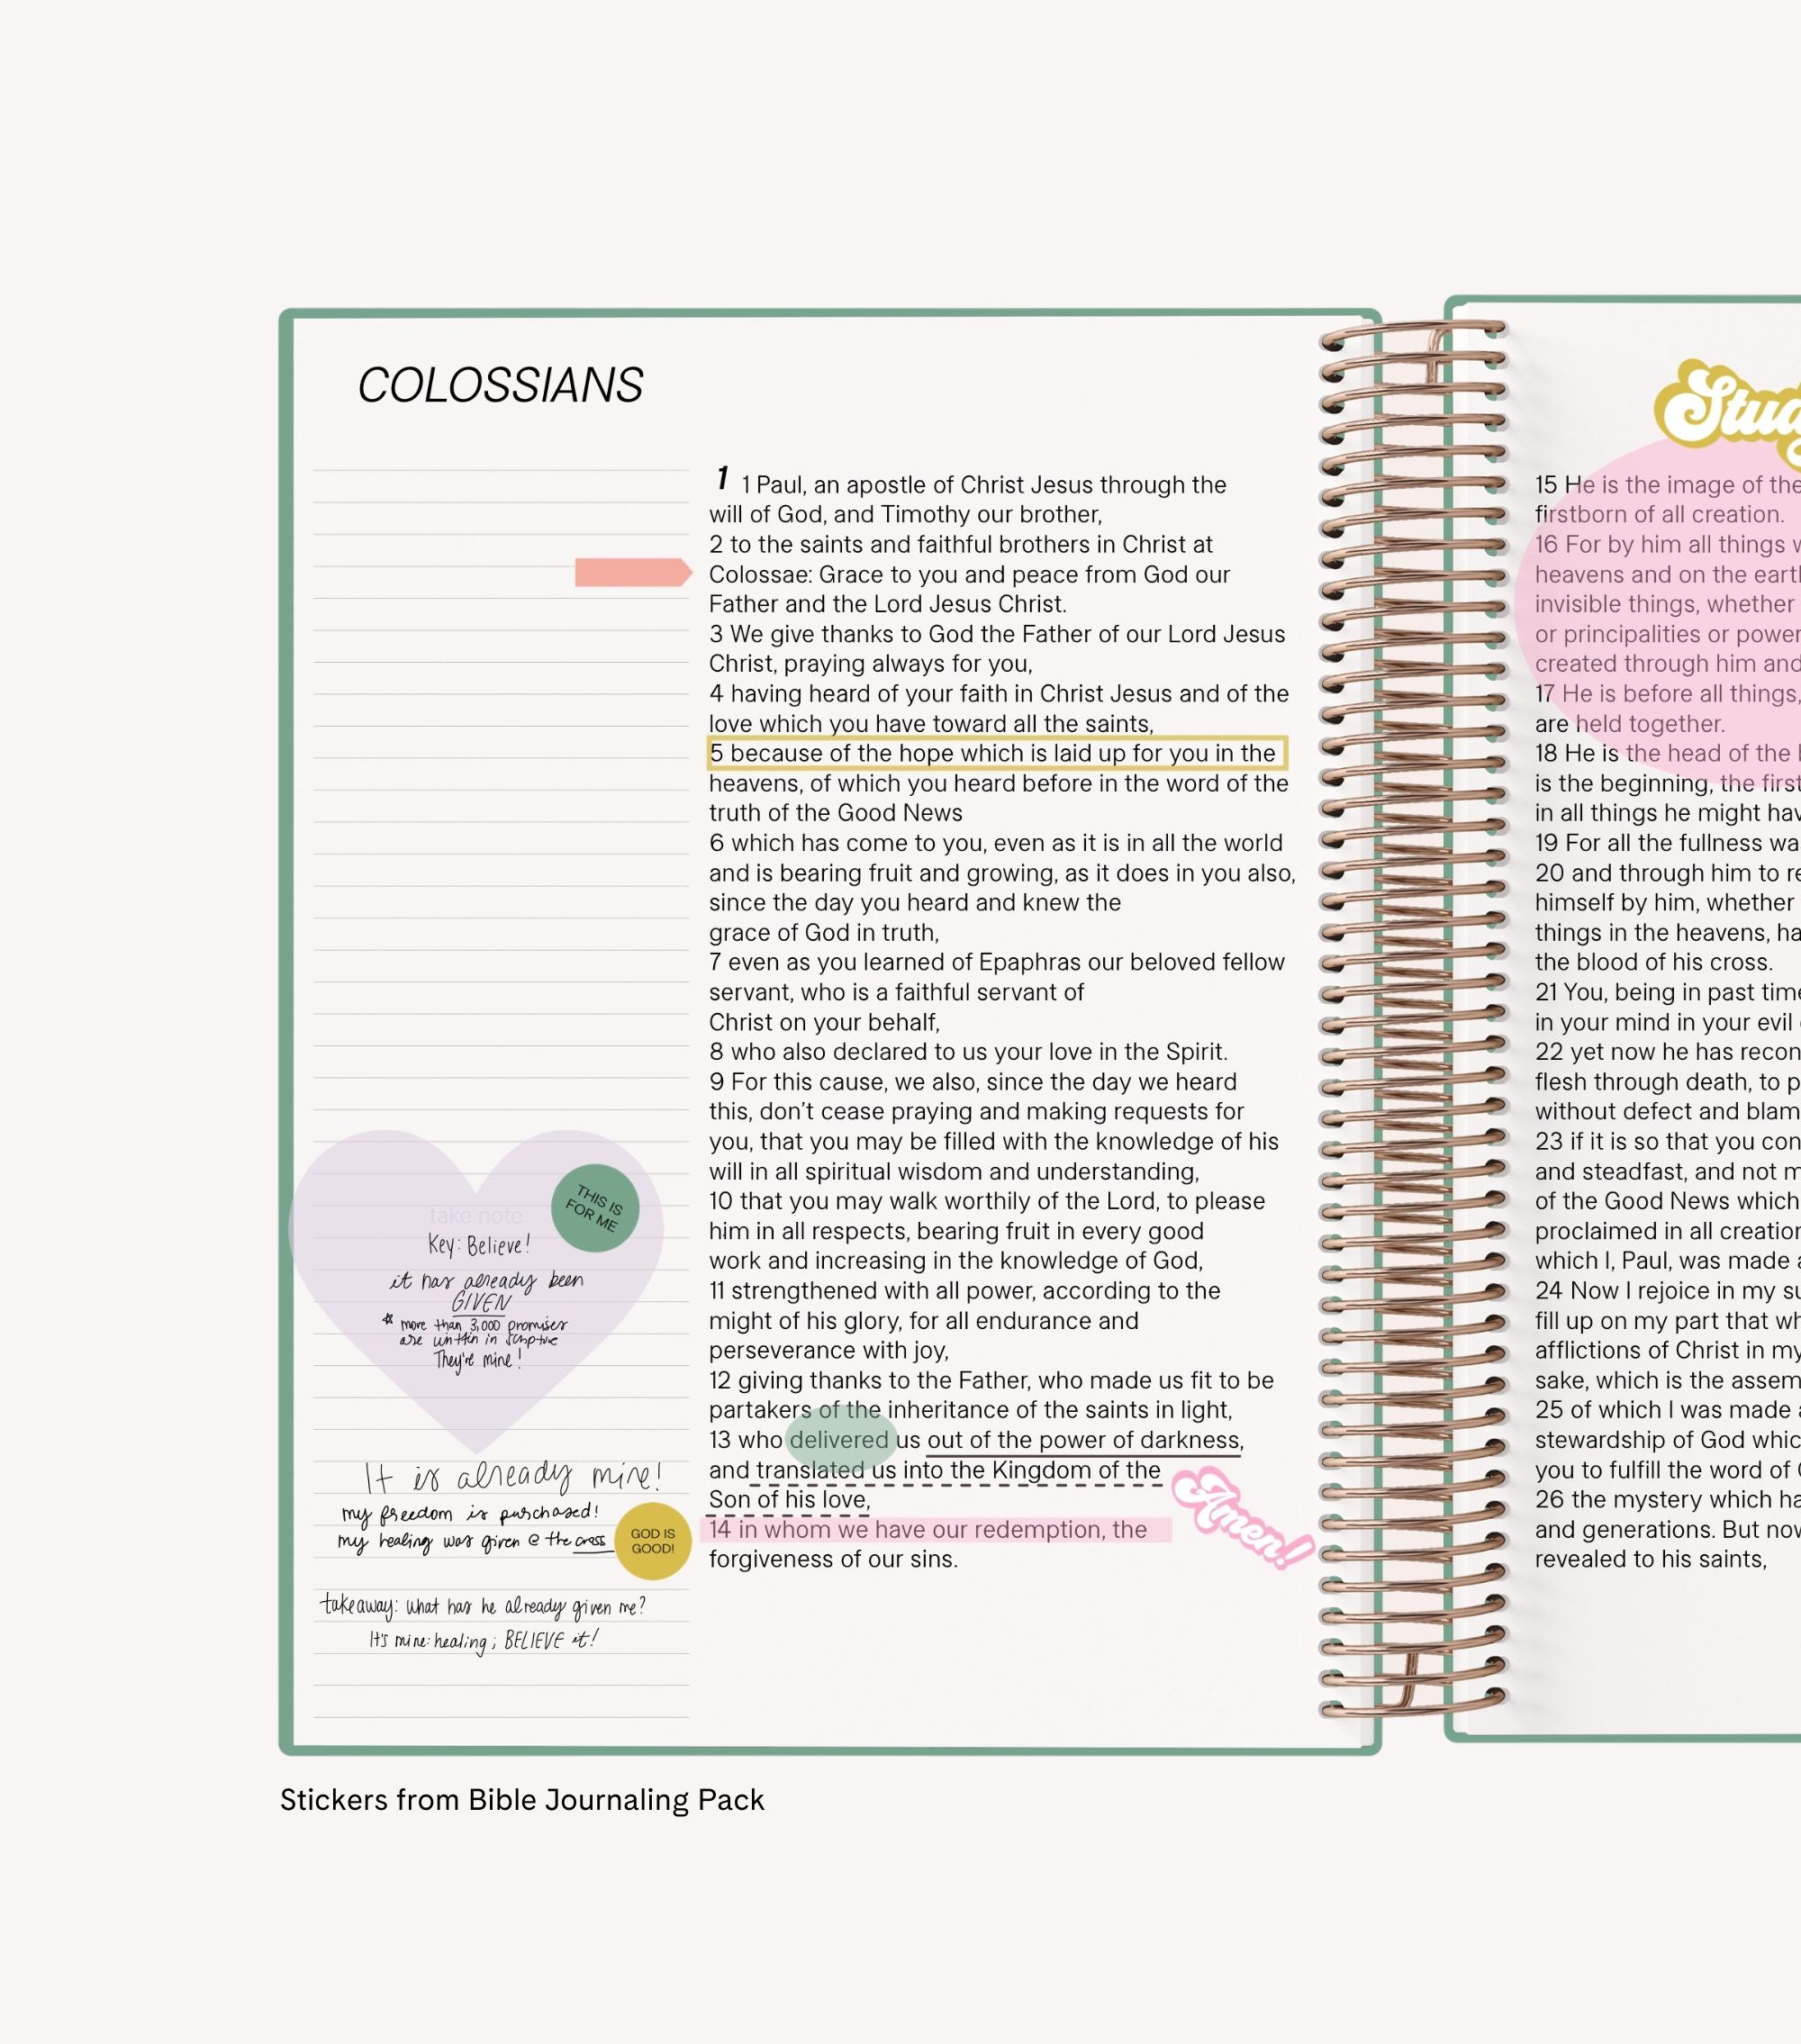 COLOSSIANS
1 1 Paul, an apostle of Christ Jesus through the
will of God, and Timothy our brother,
2 to the saints and faithful brothers in Christ at
Colossae: Grace to you and peace from God our
Father and the Lord Jesus Christ.
3 We give thanks to God the Father of our Lord Jesus
Christ, praying always for you,
4 having heard of your faith in Christ Jesus and of the
love which you have toward all the saints,
5 because of the hope which is laid up for you in the
heavens, of which you heard before in the word of the
truth of the Good News
6 which has come to you, even as it is in all the world
and is bearing fruit and growing, as it does in you also,
since the day you heard and knew the
grace of God in truth,
7 even as you learned of Epaphras our beloved fellow
servant, who is a faithful servant of
Christ on your behalf,
8 who also declared to us your love in the Spirit.
9 For this cause, we also, since the day we heard
this, don’t cease praying and making requests for
you, that you may be filled with the knowledge of his
will in all spiritual wisdom and understanding,
10 that you may walk worthily of the Lord, to please
him in all respects, bearing fruit in every good
work and increasing in the knowledge of God,
11 strengthened with all power, according to the
might of his glory, for all endurance and
perseverance with joy,
12 giving thanks to the Father, who made us fit to be
partakers of the inheritance of the saints in light,
13 who delivered us out of the power of darkness,
and translated us into the Kingdom of the
Son of his love,
14 in whom we have our redemption, the
forgiveness of our sins.
Amen!
THIS IS
FOR ME
take note
Key: Believe!
it has already been
GIVEN
* more than 3,000 promises
are written in scripture
They're mine!
It is already mine!
my freedom is purchased!
my healing was given @ the cross
GOD IS
GOOD!
takeaway: what has he already given me?
It's mine: healing; BELIEVE it!
15 He is the image of the
firstborn of all creation.
16 For by him all things
heavens and on the
invisible things, whether
or principalities or
created through him and
17 He is before all things,
are held together.
18 He is the head of the
is the beginning, the
in all things he might
19 For all the fullness
20 and through him to
himself by him, whether
things in the heavens,
the blood of his cross.
21 You, being in past
in your mind in your evil
22 yet now he has
flesh through death, to
without defect and
23 if it is so that you
and steadfast, and not
of the Good News which
proclaimed in all
which I, Paul, was made
24 Now I rejoice in my
fill up on my part that
afflictions of Christ in my
sake, which is the
25 of which I was made
stewardship of God
you to fulfill the word of
26 the mystery which
and generations. But
revealed to his saints,
Stickers from Bible Journaling Pack